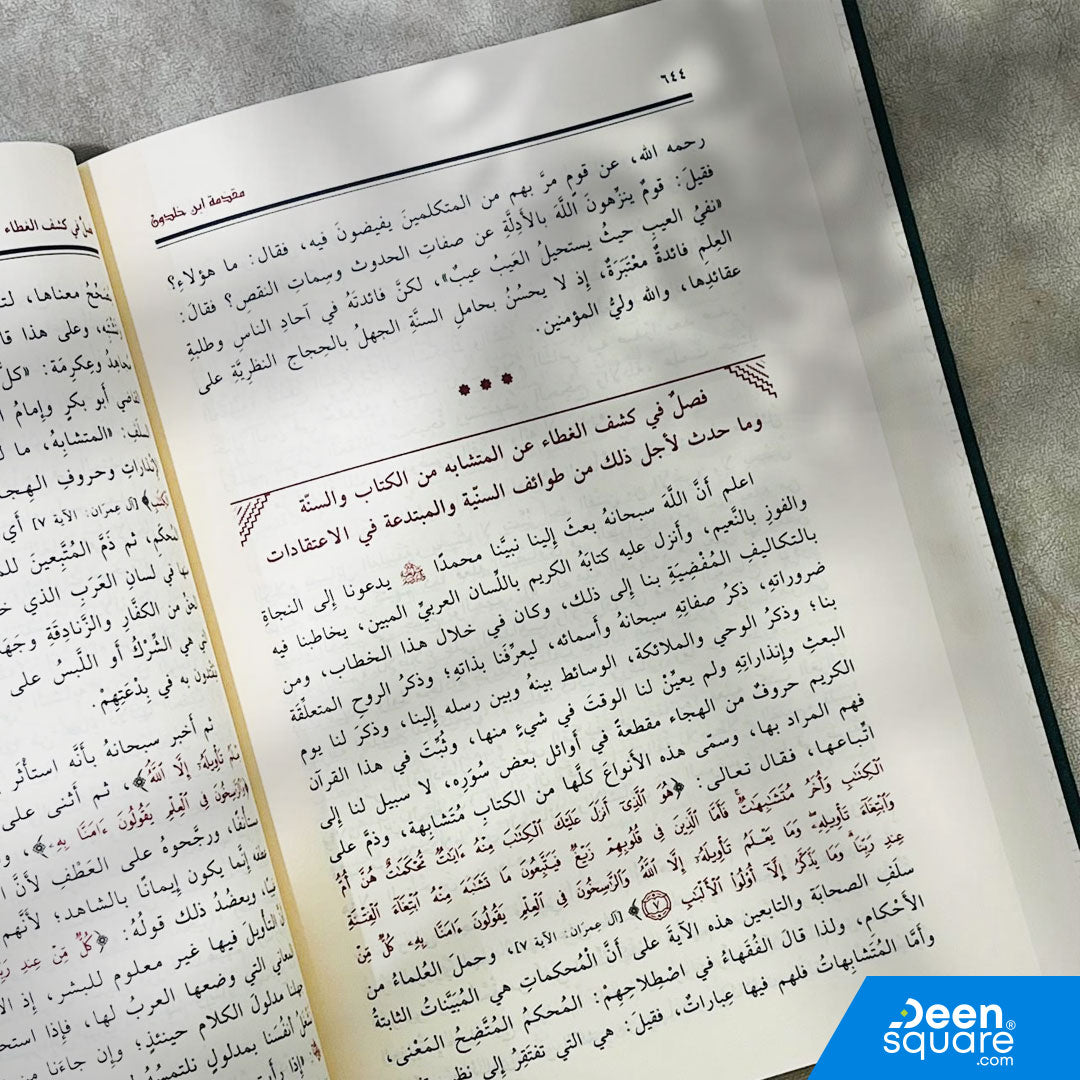 ٦٤٤
مقدمة ابن خلدون
رحمه الله، عن قومٍ مرَّ بهم من المتكلمينَ يفيضونَ فيه، فقال: ما هؤلاءِ؟
فقيلَ: قومٌ ينزِّهونَ اللَّهَ بالأدِلَّةِ عن صفاتِ الحدوث وسِماتِ النقصِ؟ فقالَ:
«نفيُ العيبِ حيثُ يستحيلُ العَيبُ عيبٌ»، لكنَّ فائدتَهُ في آحادِ الناسِ وطلبةِ
العِلمِ فائدةٌ معْتَبَرَةٌ، إذ لا يحسُنُ بحاملِ السنَّةِ الجهلُ بالحِجاجِ النظريَّةِ على
عقائدِها، والله وليُّ المؤمنين.
فصلٌ في كشفِ الغطاء عن المتشابه من الكتاب والسنّة
وما حدث لأجل ذلك من طوائف السنّية والمبتدعة في الاعتقادات
اعلم أنَّ اللَّهَ سبحانهُ بعثَ إلينا نبيَّنا محمدًا ﷺ يدعونا إلى النجاةِ
والفوزِ بالنَّعيم، وأنزل عليه كتابَهُ الكريم باللِّسان العربيِّ المبين، يخاطبنا فيه
بالتكاليفِ المُفْضِيَةِ بنا إلى ذلك، وكان في خلال هذا الخطاب، ومن
ضروراتِهِ، ذكرُ صفاتِهِ سبحانهُ وأسمائه، ليعرِّفَنا بذاتِهِ؛ وذكرُ الروحِ المتعلِّقةِ
بنا؛ وذكرُ الوحي والملائكة، الوسائط بينهُ وبين رسله إلينا، وذكَرَ لنا يوم
البعثِ وإنذاراتِهِ ولم يعيِّنْ لنا الوقتَ في شيءٍ منها، وثُبِّتَ في هذا القرآن
الكريم حروفٌ من الهجاء مقطعةً في أوائل بعض سُوَرِه، لا سبيل لنا إلى
فهم المراد بها، وسمّى هذه الأنواعَ كلَّها من الكتابِ مُتَشابهة، وذمَّ على
اتِّباعها، فقال تعالى: ﴿هُوَ الَّذِي أَنزَلَ عَلَيْكَ الْكِتَٰبَ مِنْهُ ءَايَٰتٌ مُّحْكَمَٰتٌ هُنَّ أُمُّ
الْكِتَٰبِ وَأُخَرُ مُتَشَٰبِهَٰتٌ ۖ فَأَمَّا الَّذِينَ فِي قُلُوبِهِمْ زَيْغٌ فَيَتَّبِعُونَ مَا تَشَٰبَهَ مِنْهُ ابْتِغَاءَ الْفِتْنَةِ
وَابْتِغَاءَ تَأْوِيلِهِ ۗ وَمَا يَعْلَمُ تَأْوِيلَهُ إِلَّا اللَّهُ ۗ وَالرَّاسِخُونَ فِي الْعِلْمِ يَقُولُونَ ءَامَنَّا بِهِ كُلٌّ مِّنْ
عِندِ رَبِّنَا ۗ وَمَا يَذَّكَّرُ إِلَّا أُوْلُوا الْأَلْبَٰبِ ٧﴾ [آل عِمرَان: الآية ٧]، وحملَ العُلماءُ من
سلَفِ الصحابَة والتابعين هذه الآيةَ على أنَّ المُحكماتِ هي المُبَيَّناتُ الثابتةُ
الأحْكامِ، ولذا قالَ الفُقَهاءُ في اصْطلاحِهِمْ: المُحكمُ المُتَّضِحُ المَعْنى،
وأمَّا المُتَشابِهاتُ فلهم فيها عِباراتٌ، فقيلَ: هي التي تفتَقِرُ إلى
في كشف الغطاء
معناها،
وعلى هذا
وعِكرِمَة: «كلُّ
أبو بكرٍ وإمامُ
«المتشابِهُ، ما
وحروفِ الهجاءِ
[آل عِمرَان: الآية ٧] أي
ثم ذَمَّ المُتَّبِعينَ
في لسانِ العَرَبِ الذي
من الكفَّارِ والزَّنادِقَةِ
هي الشِّرْكُ أو اللَّبسُ على
به في بِدْعَتِهِمْ.
ثم أَخبر سبحانهُ بأنَّه استأْثَر
تَأْوِيلَهُ إِلَّا اللَّهُ﴾، ثم أثنى على
وَالرَّاسِخُونَ فِي الْعِلْمِ يَقُولُونَ ءَامَنَّا بِهِ﴾،
ورجَّحوهُ على العَطْفِ لأنَّ
إنَّما يكون إيمانًا بالشاهد؛ لأنَّهم
ويعضُدُ ذلك قولُهُ: ﴿كُلٌّ مِّنْ عِندِ
التأويلَ فيها غير معلومٍ للبشر، إذ
التي وضعها العربُ لها، فإذا
مدلولَ الكلام حينئذٍ؛ وإن جاءَنا من
أنفُسَنا بمدلولٍ نلتمِسُهُ
Deen
square®
.com